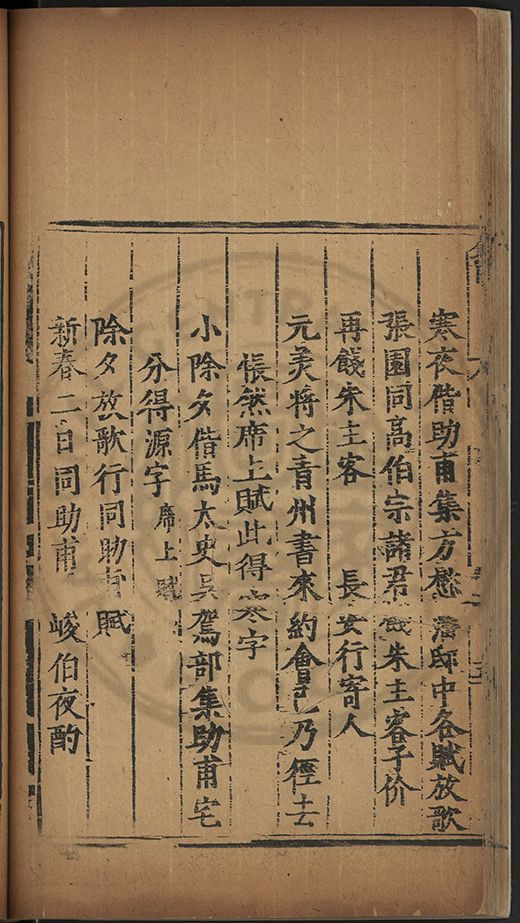 寒夜偕助甫集方懋藩邸中各賦放歌
張園同高伯宗諸君餞朱主客子价
再餞朱主客 長安行寄人
元美將之青州書來約會已乃徑去
悵然席上賦此得寒字
小除夕偕馬太史吳駕部集助甫宅
分得源字 席上賦
除夕放歌行同助甫賦
新春二日同助甫 峻伯夜酌